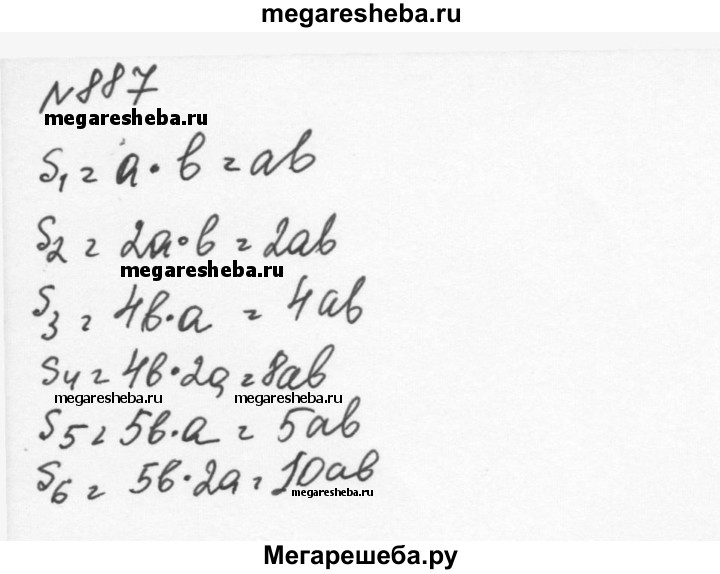 megaresheba.ru
№887
megaresheba.ru
S₁ = a · b = ab
S₂ = 2a·b = 2ab
megaresheba.ru
S₃ = 4b·a = 4ab
S₄ = 4b·2a = 8ab
megaresheba.ru megaresheba.ru
S₅ = 5b·a = 5ab
S₆ = 5b·2a = 10ab
megaresheba.ru
Мегарешеба.ру